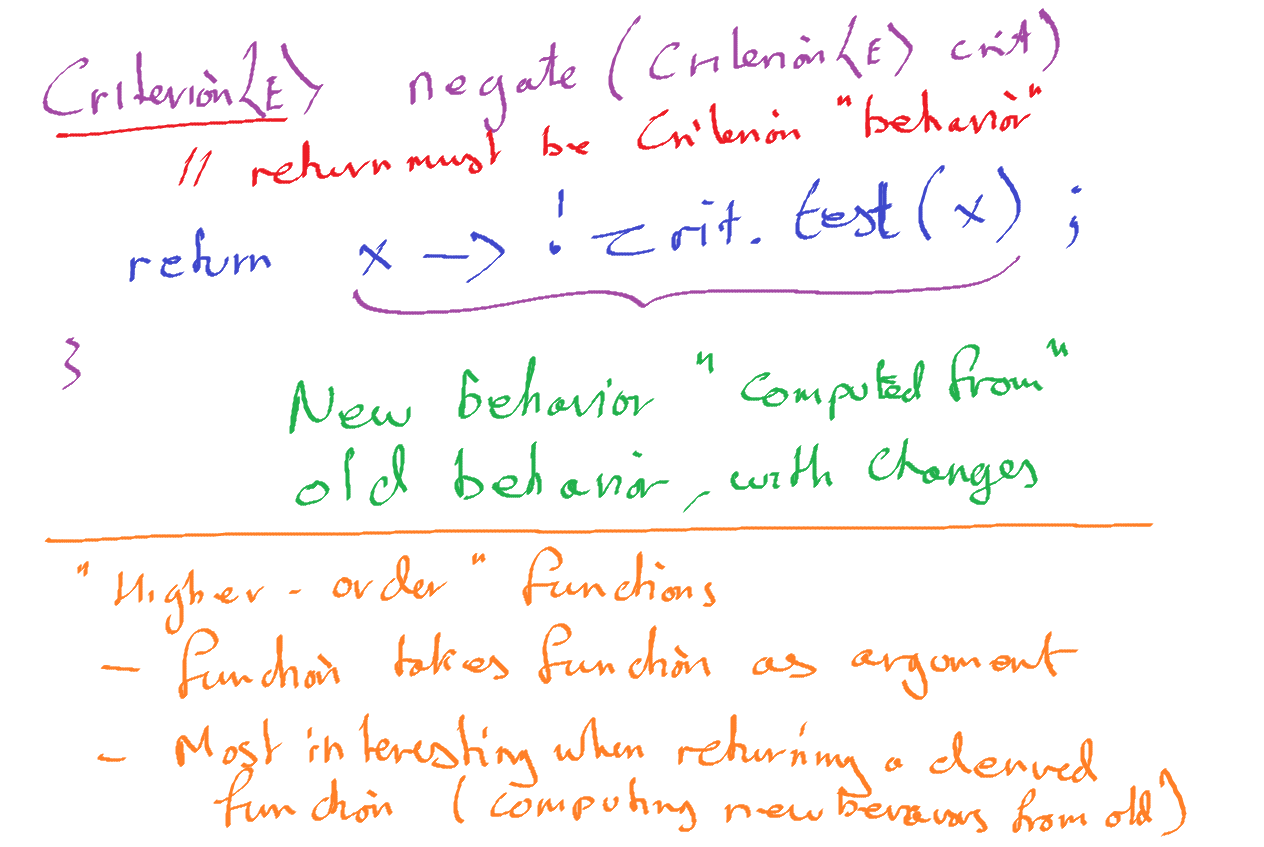 Criterion<E> negate (Criterion<E> crit)
// return must be Criterion "behavior"
return x -> ! crit. test(x) ;
}
New behavior "computed from"
old behavior, with changes
"Higher-order" functions
- function takes function as argument
- Most interesting when returning a derived
function (computing new behaviors from old)